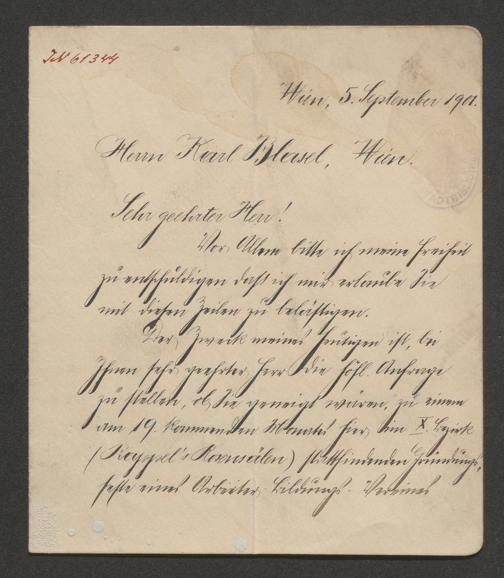 IN 61344
Wien, 5. September 1901.
Herrn Karl Blasel, Wien.
Sehr geehrter Herr!
Vor Allem bitte ich meine Freiheit
zu entschuldigen daß ich mir erlaube Sie
mit diesen Zeilen zu belästigen.
Der Zweck meines Heutigen ist, bei
Ihnen sehr geehrter Herr die höfl. Anfrage
zu stellen, ob Sie geneigt wären, zu einem
am 19. kommenden Monats hier, im X. Bezirk
(Koppel's Rosensälen) stattfindenden Gründungs-
feste eines Arbeiter-Bildungs-Vereines